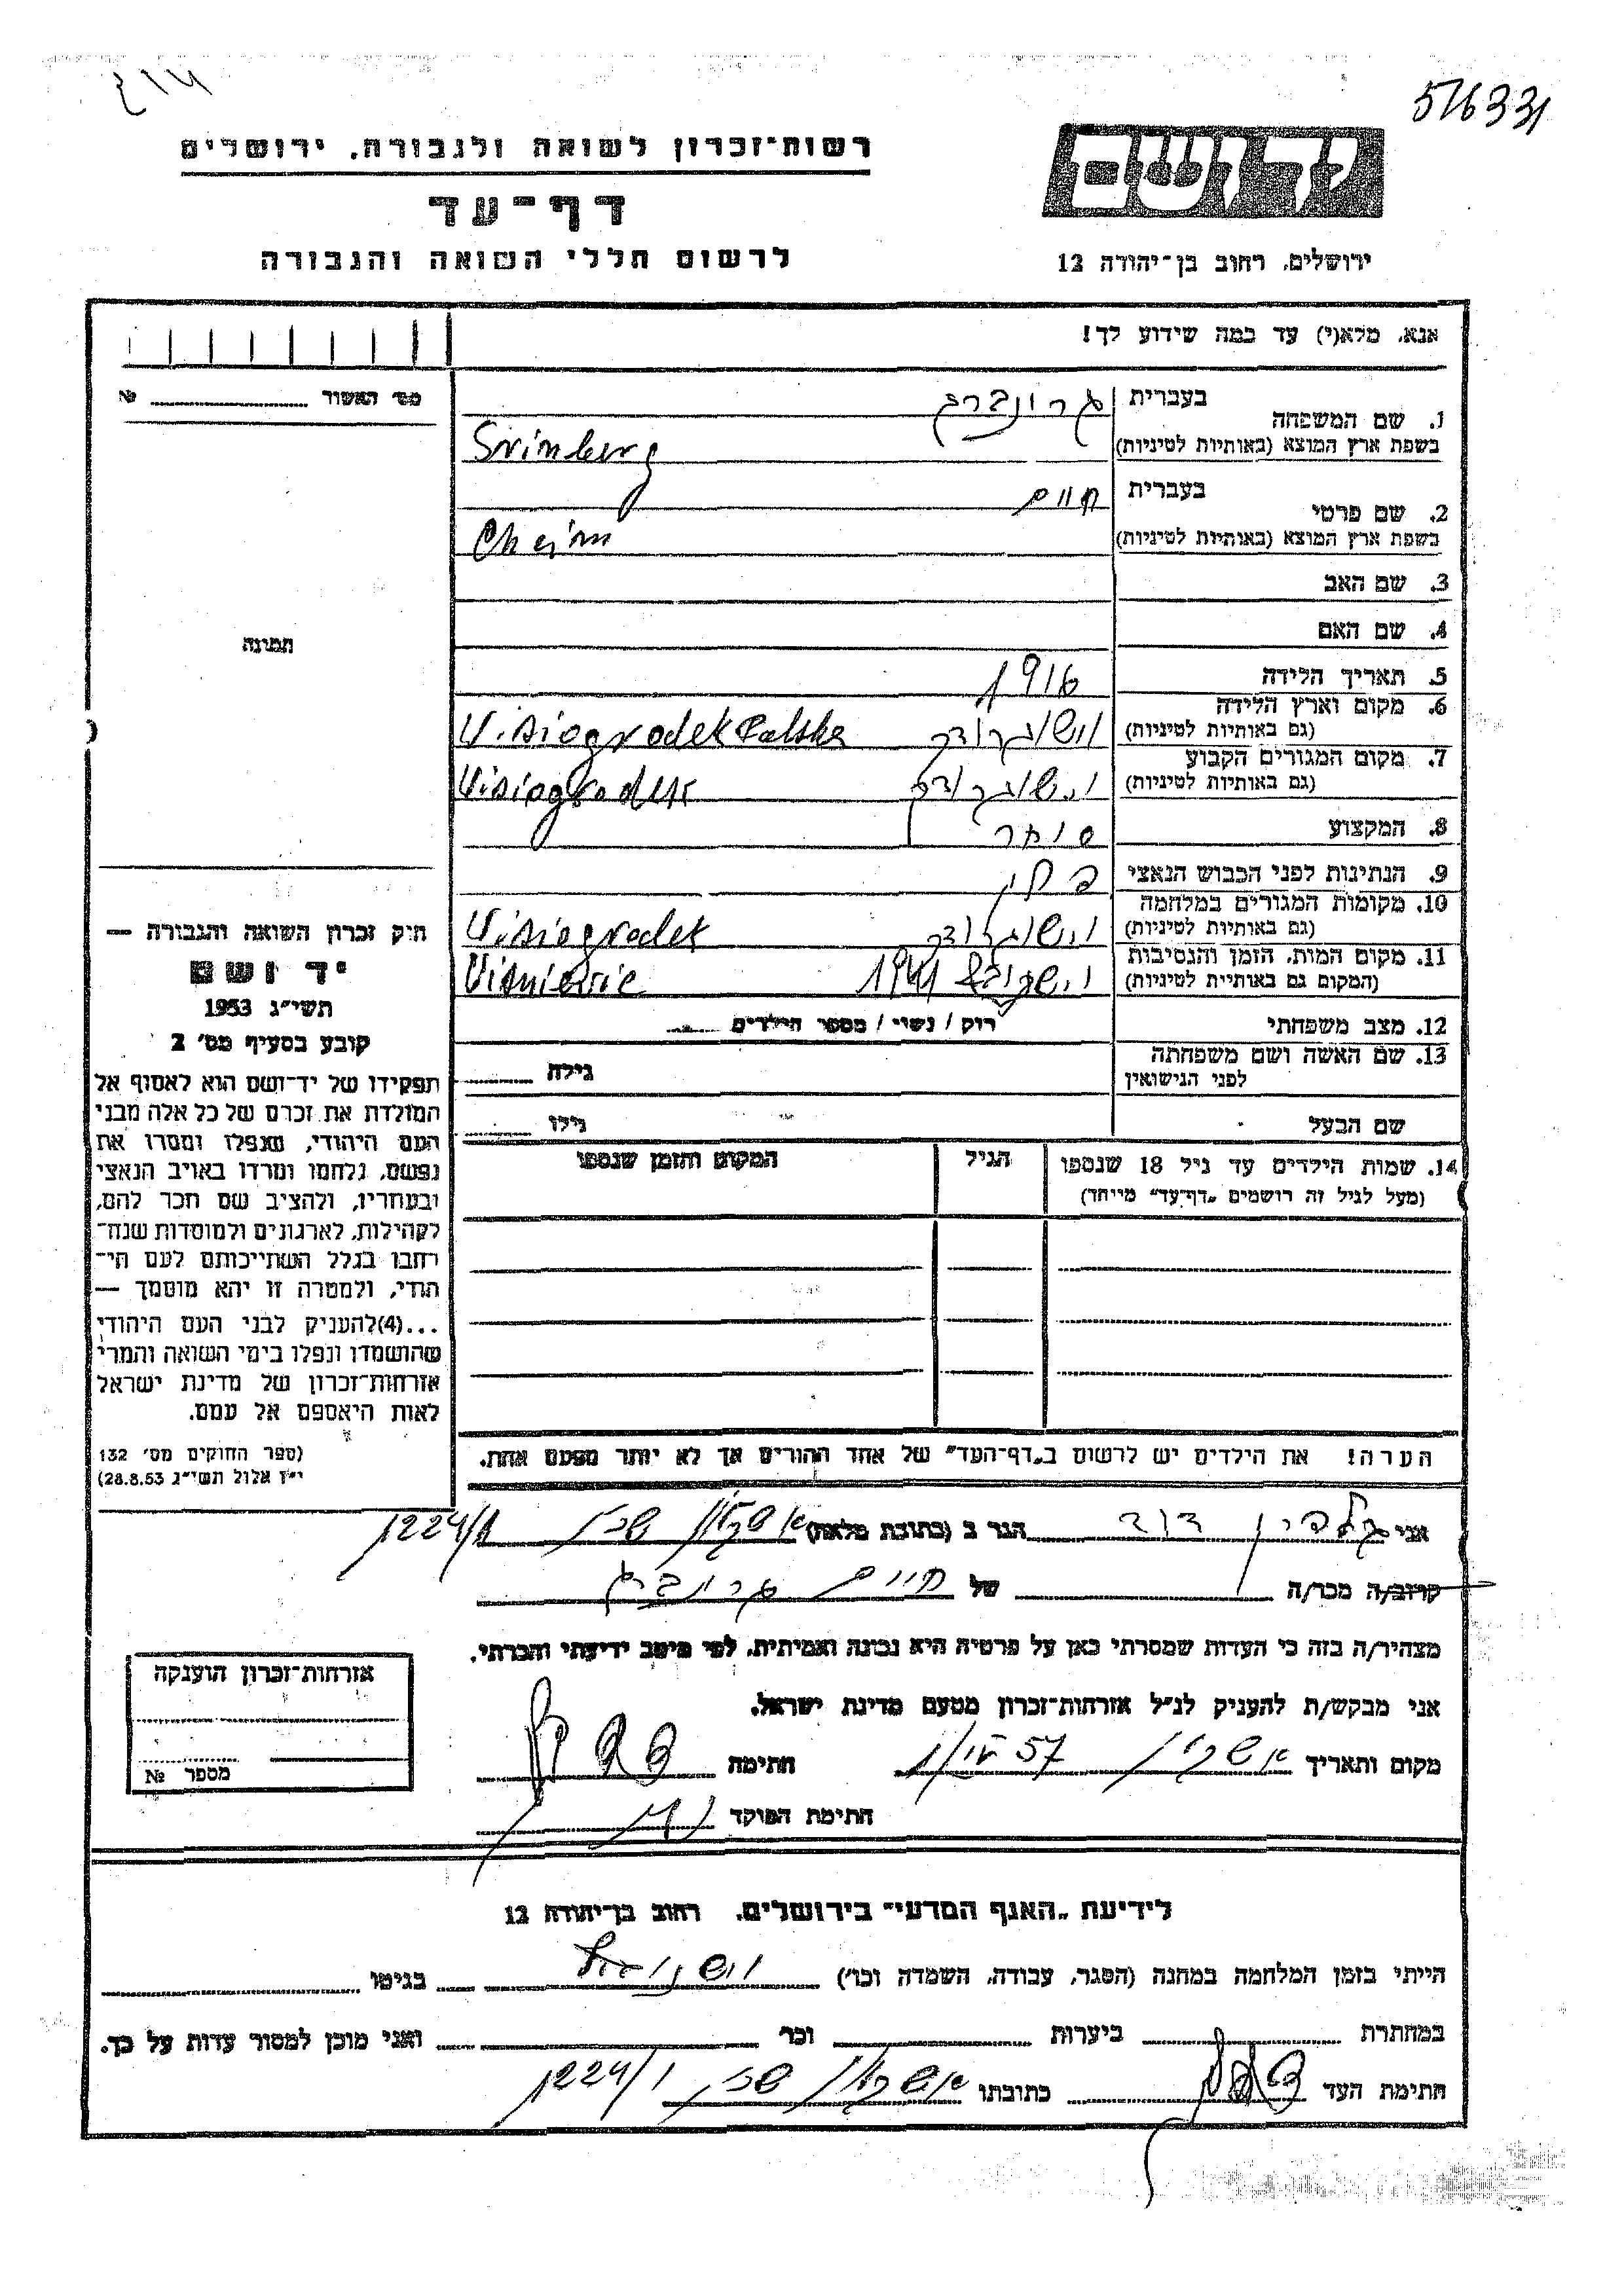 516331
רשות־זכרון לשואה ולגבורה, ירושלים
דף־עד
לרשום חללי השואה והגבורה
ידושם
ירושלים, רחוב בן־יהודה 12
אנא, מלא(י) עד כמה שידוע לך!
מס' האשור № 
1. שם המשפחה בעברית גרונברג
בשפת ארץ המוצא (באותיות לטיניות) Srinberg
2. שם פרטי בעברית חיים
בשפת ארץ המוצא (באותיות לטיניות) Cheim
3. שם האב
4. שם האם
5. תאריך הלידה 1916
6. מקום וארץ הלידה
(גם באותיות לטיניות) וישוגרודק Visiogrodek Polska
7. מקום המגורים הקבוע
(גם באותיות לטיניות) וישוגרודק Visiogrodek
8. המקצוע סוחר
9. הנתינות לפני הכבוש הנאצי פולין
10. מקומות המגורים במלחמה
(גם באותיות לטיניות) וישוגרודק Visiogrodek
11. מקום המות, הזמן והנסיבות
(המקום גם באותיית לטיניות) 1941 Visniewie
12. מצב משפחתי רוק / נשוי / מספר הילדים
13. שם האשה ושם משפחתה
לפני הנישואין גילה
שם הבעל גילו
תמונה
חוק זכרון השואה והגבורה —
יד ושם
תשי״ג 1953
קובע בסעיף מס' 2
תפקידו של יד־ושם הוא לאסוף אל
המולדת את זכרם של כל אלה מבני
העם היהודי, שנפלו ומסרו את
נפשם, נלחמו ומרדו באויב הנאצי
ובעוזריו, ולהציב שם וזכר להם,
לקהילות, לארגונים ולמוסדות שנח־
רבו בגלל השתייכותם לעם הי־
הודי, ולמטרה זו יהא מוסמך —
...(4)להעניק לבני העם היהודי
שהושמדו ונפלו בימי השואה והמרי
אזרחות־זכרון של מדינת ישראל
לאות היאספם אל עמם.
(ספר החוקים מס' 132
י״ז אלול תשי״ג 28.8.53)
14. שמות הילדים עד גיל 18 שנספו הגיל המקום והזמן שנספו
(מעל לגיל זה רושמים „דף־עד" מיוחד)
הערה! את הילדים יש לרשום ב„דף־העד" של אחד ההורים אך לא יותר מפעם אחת.
אני דוד הגר ב (כתובת מלאה) אשקלון שכון 1224/1
קרוב/ה מכר/ה של חיים גרונברג
מצהיר/ה בזה כי העדות שמסרתי כאן על פרטיה היא נכונה ואמיתית, לפי מיטב ידיעתי והכרתי.
אני מבקש/ת להעניק לנ״ל אזרחות־זכרון מטעם מדינת ישראל.
מקום ותאריך אשקלון 57 חתימה
חתימת הפוקד
אזרחות־זכרון הוענקה
מספר №
לידיעת „האגף המדעי" בירושלים, רחוב בן־יהודה 12
הייתי בזמן המלחמה במחנה (הסגר, עבודה, השמדה וכו') בגיטו
במחתרת ביערות וכו' ואני מוכן למסור עדות על כך.
חתימת העד כתובתו אשקלון שכון 1224/1